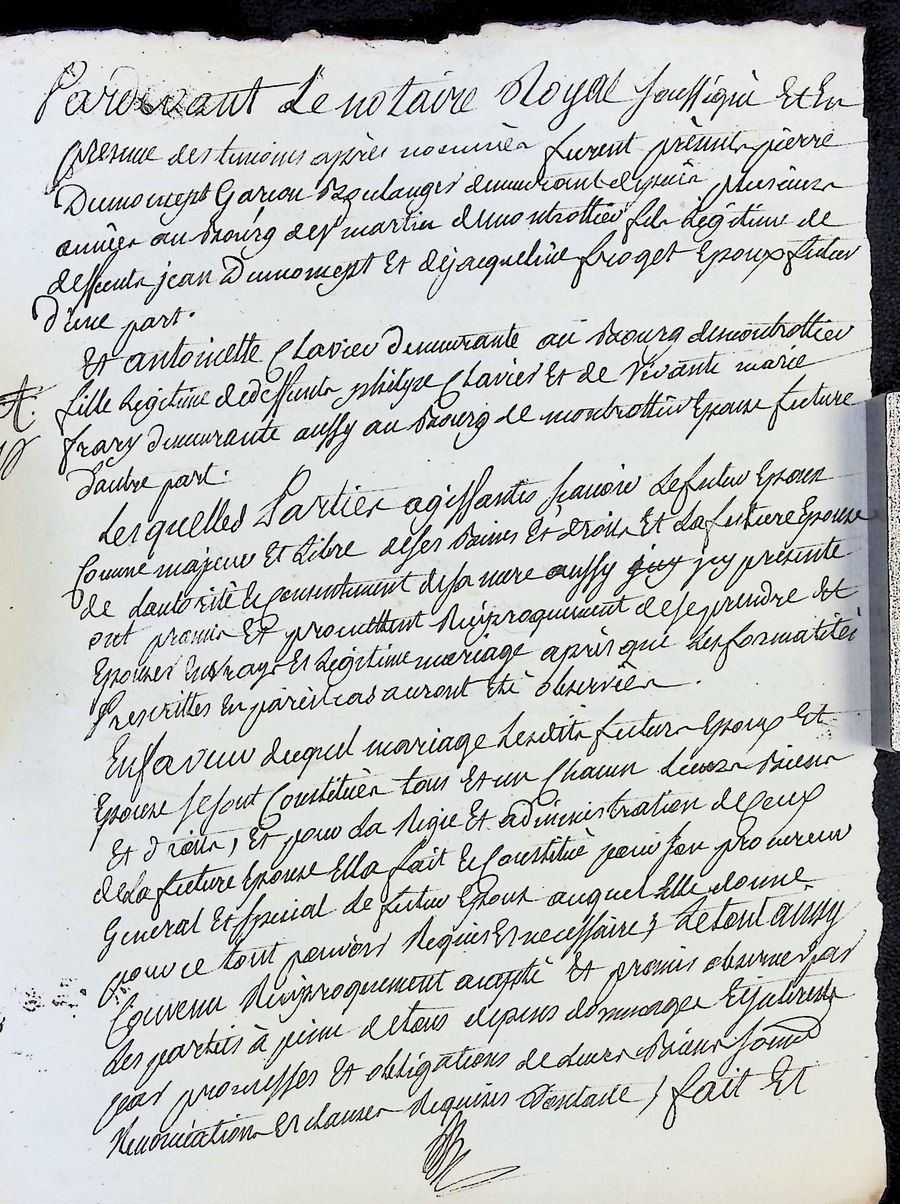 Pardevant Le notaire Royal soussigné Et En
presence des temoins après nommés furent présents pierre
Dumoncept Garcon Boulanger demeurant depuis plusieurs
années au Bourg de st martin de montrottier fils Legitime de
deffunts jean Dumoncept Et de jacqueline froget Epoux futur
D'une part.
Et antoinette Clavier demeurante au Bourg de montrottier
fille Legitime de deffunt philipe Clavier Et de vivante marie
frary demeurante aussy au Bourg de montrottier Epouse future
D'autre part.
Lesquelles Parties agissantes scavoir Le futur Epoux
Comme majeur Et Libre de ses Biens Et Droits Et La future Epouse
de L'autorité & Consentement de sa mere aussy jcy présente
ont promis Et promettent Réciproquement de se prendre Et
Epouser En vray Et Legitime mariage après que Les formalités
Prescrittes En pareil cas auront été observées.
En faveur duquel mariage Lesdits futurs Epoux Et
Epouse se sont Constitués tous Et un Chacun Leurs Biens
Et droits, Et pour La Regie Et administration de Ceux
de La future Epouse Elle a fait & Constitué pour son procureur
General Et special Le futur Epoux auquel Elle donne
pour ce tout pouvoir Requis Et necessaire; Le tout aussy
Convenu Réciproquement accepté Et promis observer par
Les parties à peine de tous depens dommages Et jnterests
par promesses Et obligations de Leurs Biens
Renonciations Et clauses Requises / fait Et